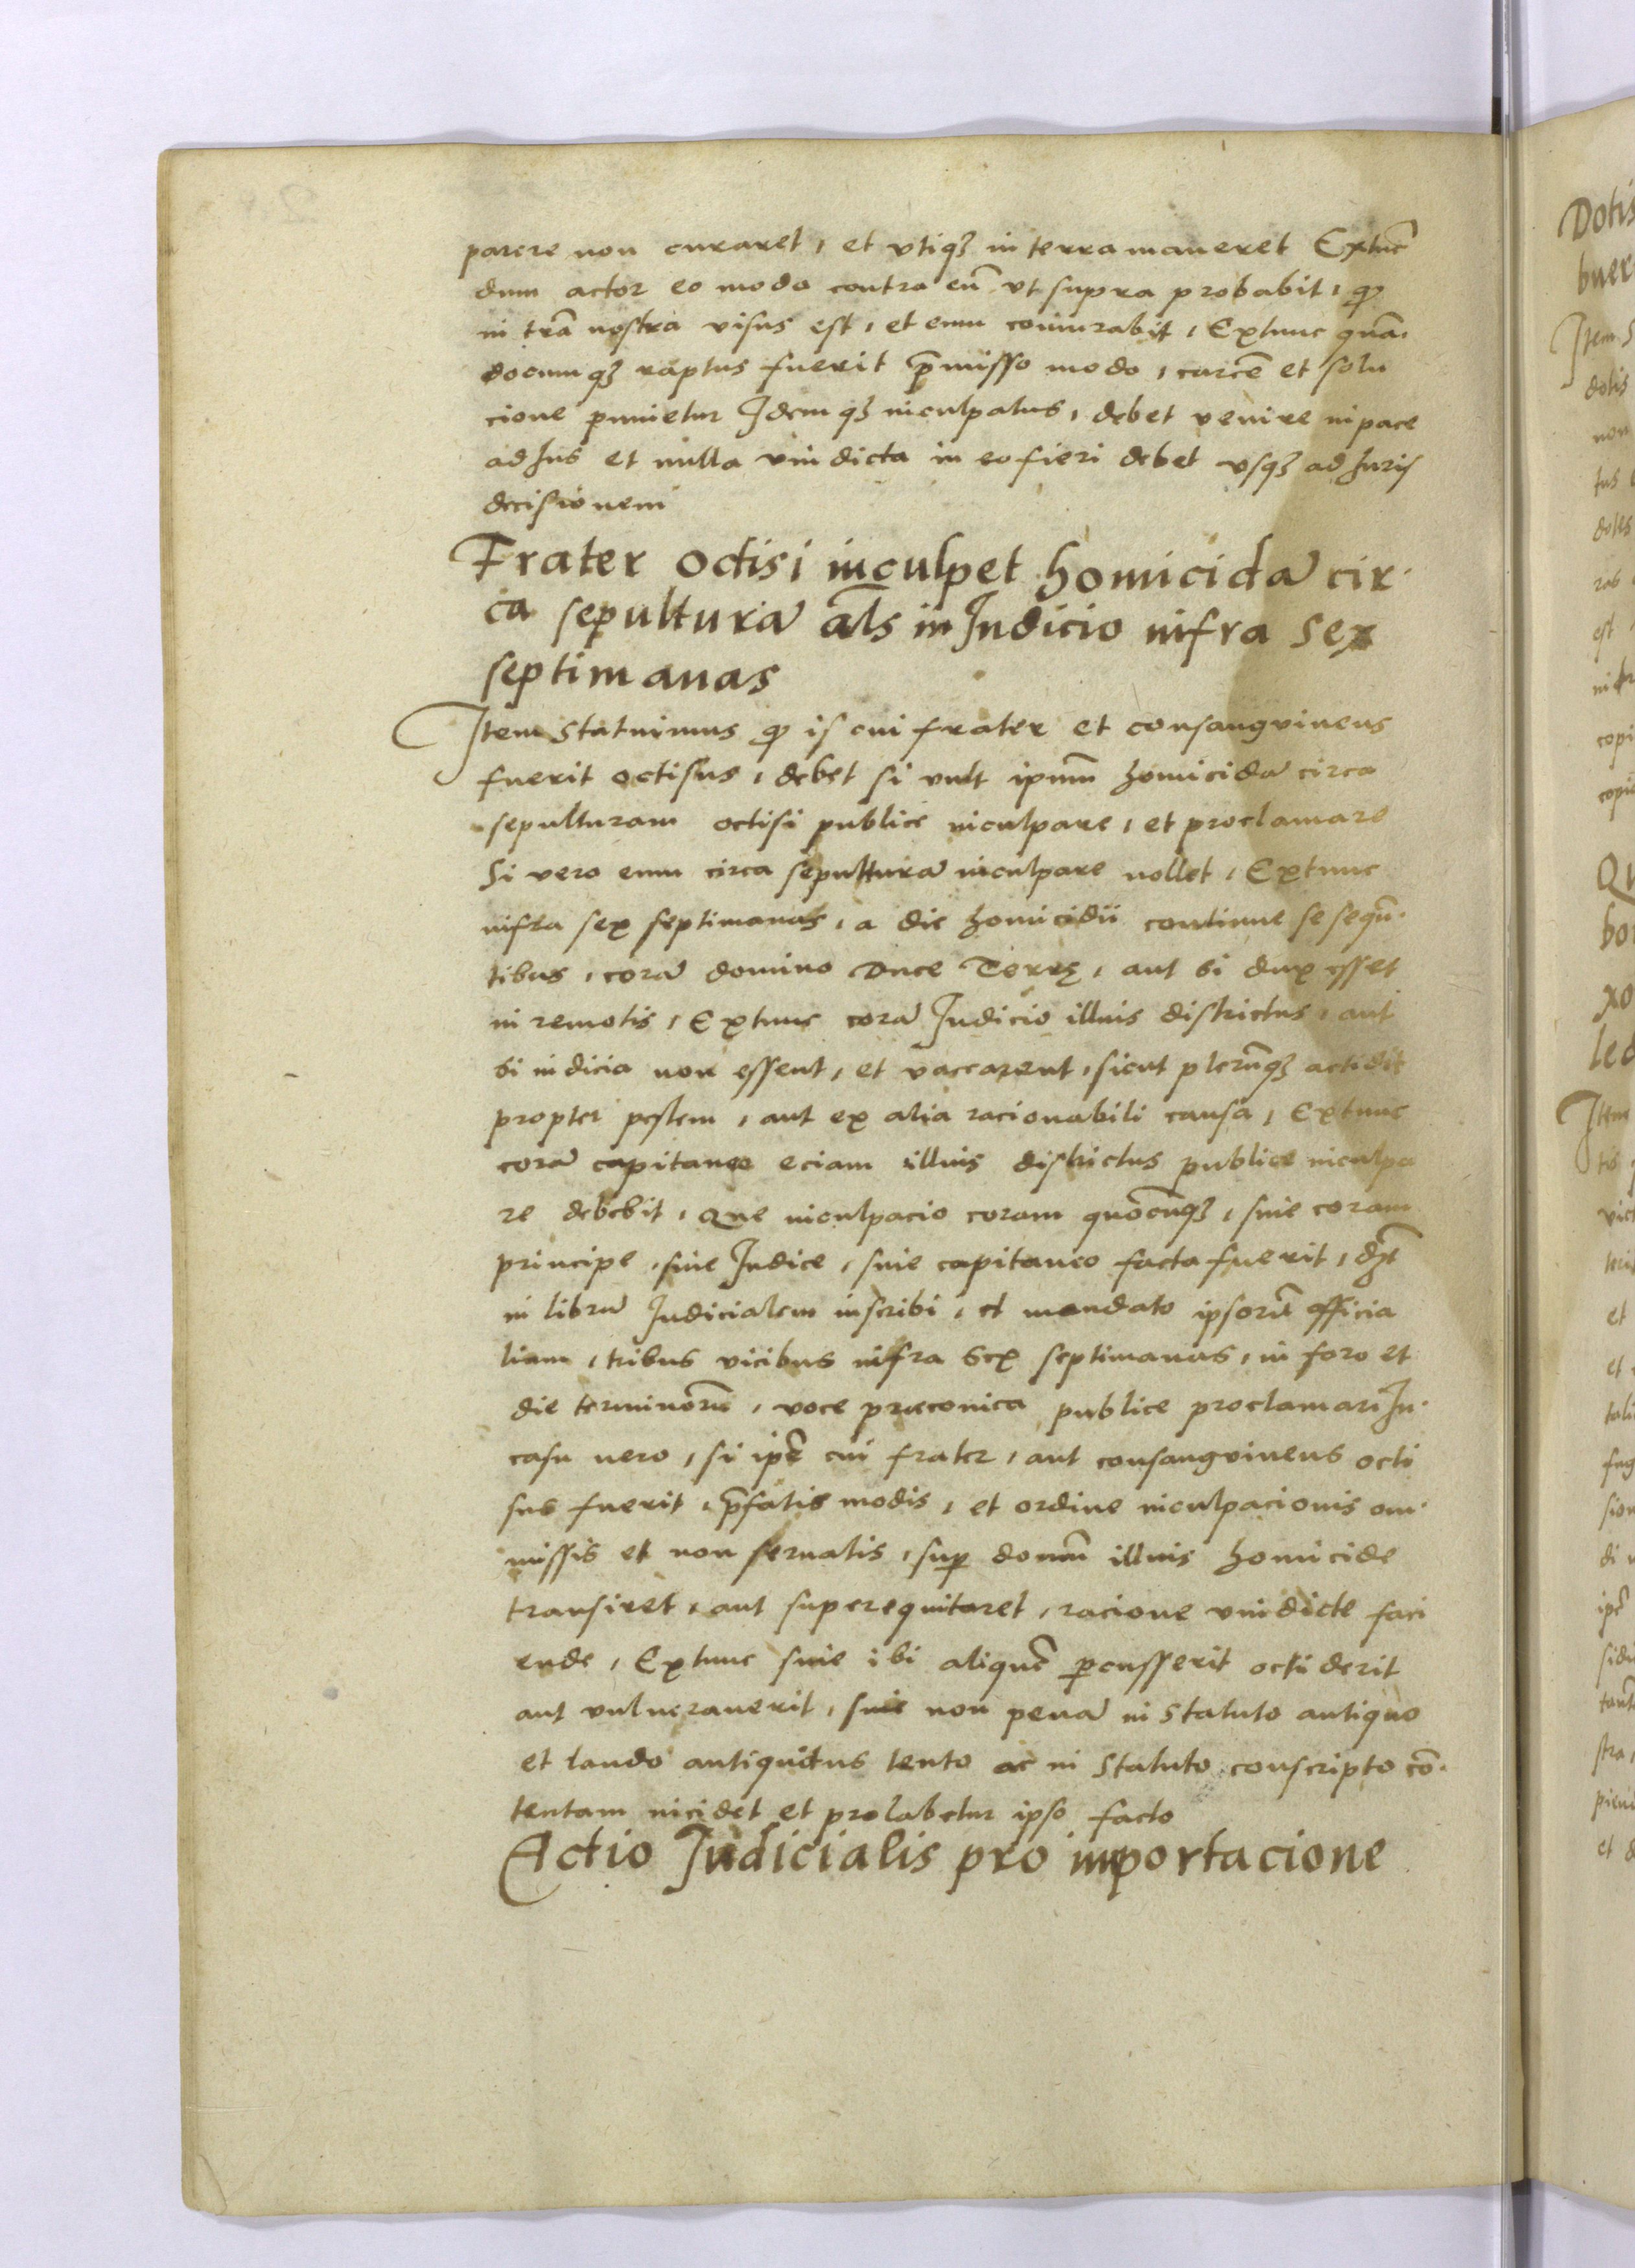 parere non curaret, et vtiqꝫ in terra maneret Extūc
dum actor eo modo contra eū vt supra probabit, ꝙ
in trā nostra visus est, et eum coniurabit, Extunc quā-
documqꝫ raptus fuerit p̄misso modo, carcē et solu
cione punietur Idemqꝫ inculpatus, debet venire in pace
ad Jus et nulla vindicta in eo fieri debet vsqꝫ ad Juris
decisionem
Frater octisi inculpet homicidā cir-
ca sepulturā al̄s in Judicio infra sex
septimanas
Item Statuimus ꝙ is cui frater et consangvineus
fuerit octisus, debet si vult ipm̄ homicidā circa
sepulturam octisi publice inculpare, et proclamare
Si vero eum circa sepulturā inculpare nollet, Extunc
infra sex septimanas, a die homicidii continue se sequē-
tibus, corā domino Duce Terrę, aut si dux esset
in remotis, Extunc corā Judicio illius districtus, aut
si iudicia non essent, et vaccarent, sicut plerūqꝫ actidit
propter pestem, aut ex alia racionabili causa, Extunc
corā capitaneo eciam illius districtus publice inculpa
re debebit, Que inculpacio coram quocūqꝫ, siue coram
principe, siue Judice, siue capitaneo facta fuerit, dꝫt
in librū Judicialem inscribi, et mandato ipsorū officia
lium, tribus vicibus infra Sex septimanas, in foro et
die terminorū, voce præconica publice proclamari In-
casu uero, si ipē cui frater, aut consangvineus octi
sus fuerit, p̄fatis modis, et ordine inculpacionis om-
missis et non seruatis, suꝑ domū illius homicide
transiret, aut superequitaret, racione vindicte faci
ende, Extunc siue ibi aliquē ꝑcusserit octiderit
aut vulnerauerit, siue non penā in Statuto antiquo
et laudo antiquitus tento ac in Statuto conscripto cō-
tentam incidet et prolabetur ipso facto
Actio Judicialis pro importacione